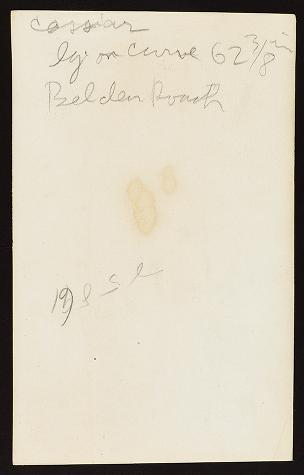 cassiar
lg on curve 62 3/8 in
Belden Roach